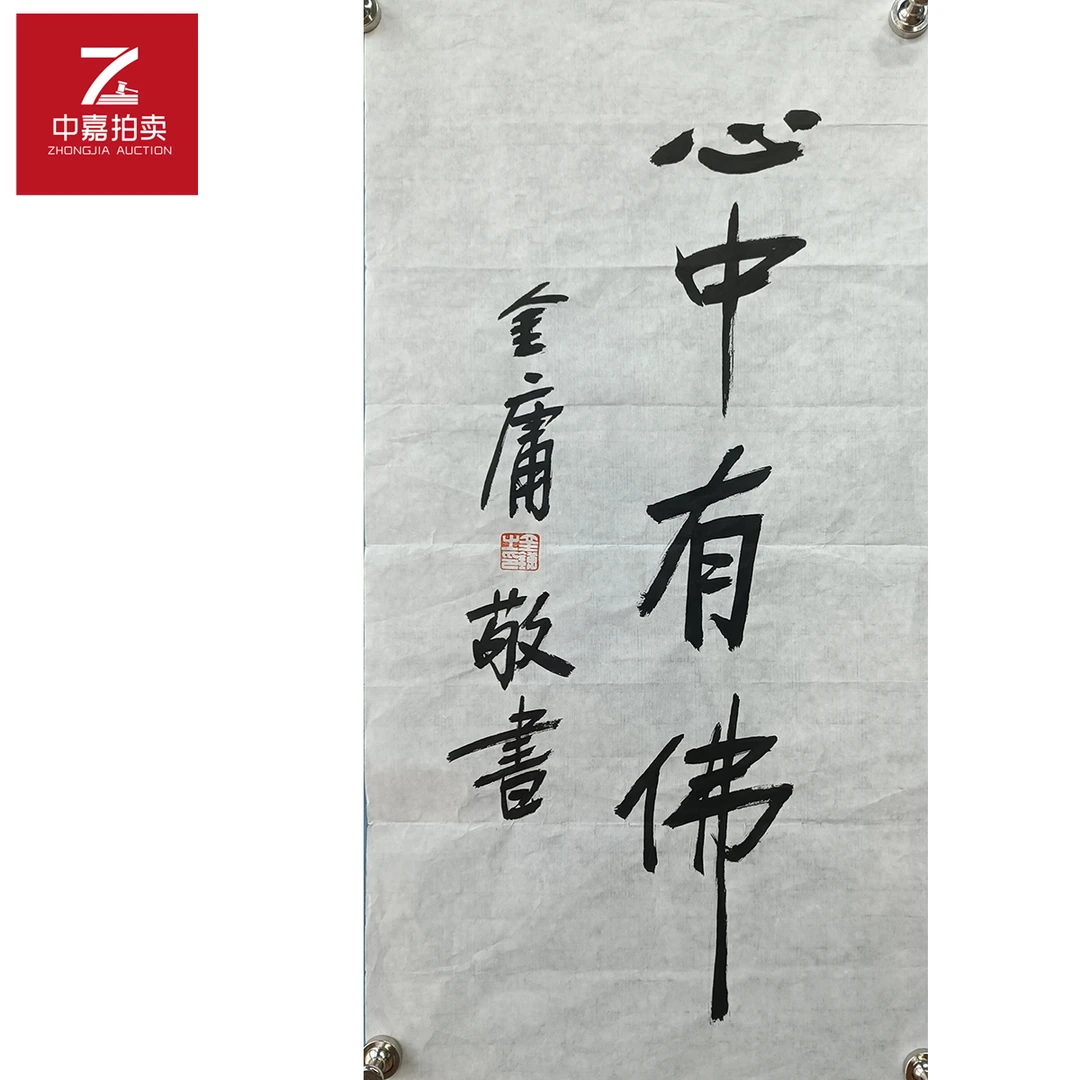 中嘉拍卖
ZHONGJIA AUCTION
心中有佛
金庸
敬書